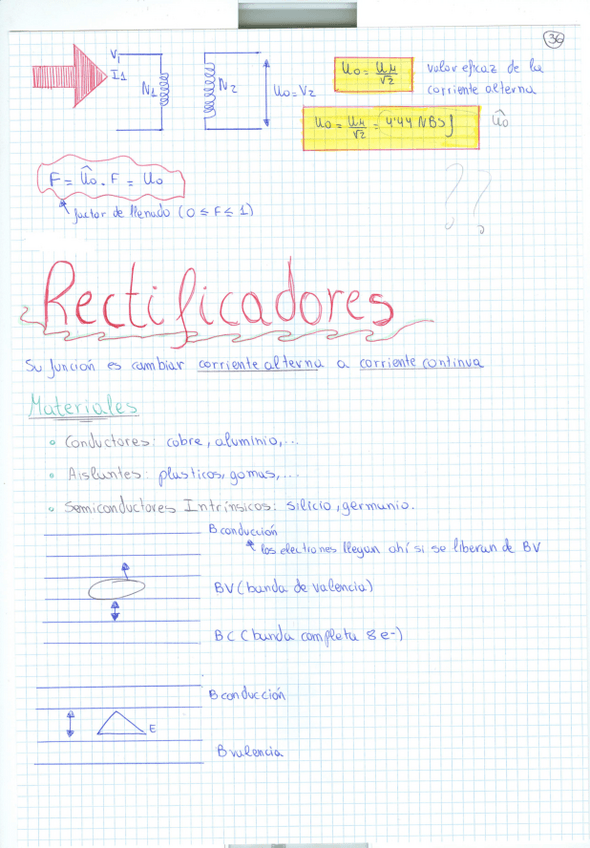 36
V1
I1
N1
N2
U0=V2
U0 = UM/√2
valor eficaz de la
corriente alterna
U0 = UM/√2 = 4'44 NBSf
Û0
F = Û0 . F = U0
factor de llenado (0 ≤ F ≤ 1)
??
Rectificadores
Su función es cambiar corriente alterna a corriente continua
Materiales
• Conductores: cobre, aluminio,...
• Aislantes: plasticos, gomas,...
• Semiconductores Intrínsicos: silicio, germanio.
B conducción
los electrones llegan ahí si se liberan de BV
BV (banda de valencia)
BC (banda completa 8 e-)
B conducción
E
B valencia